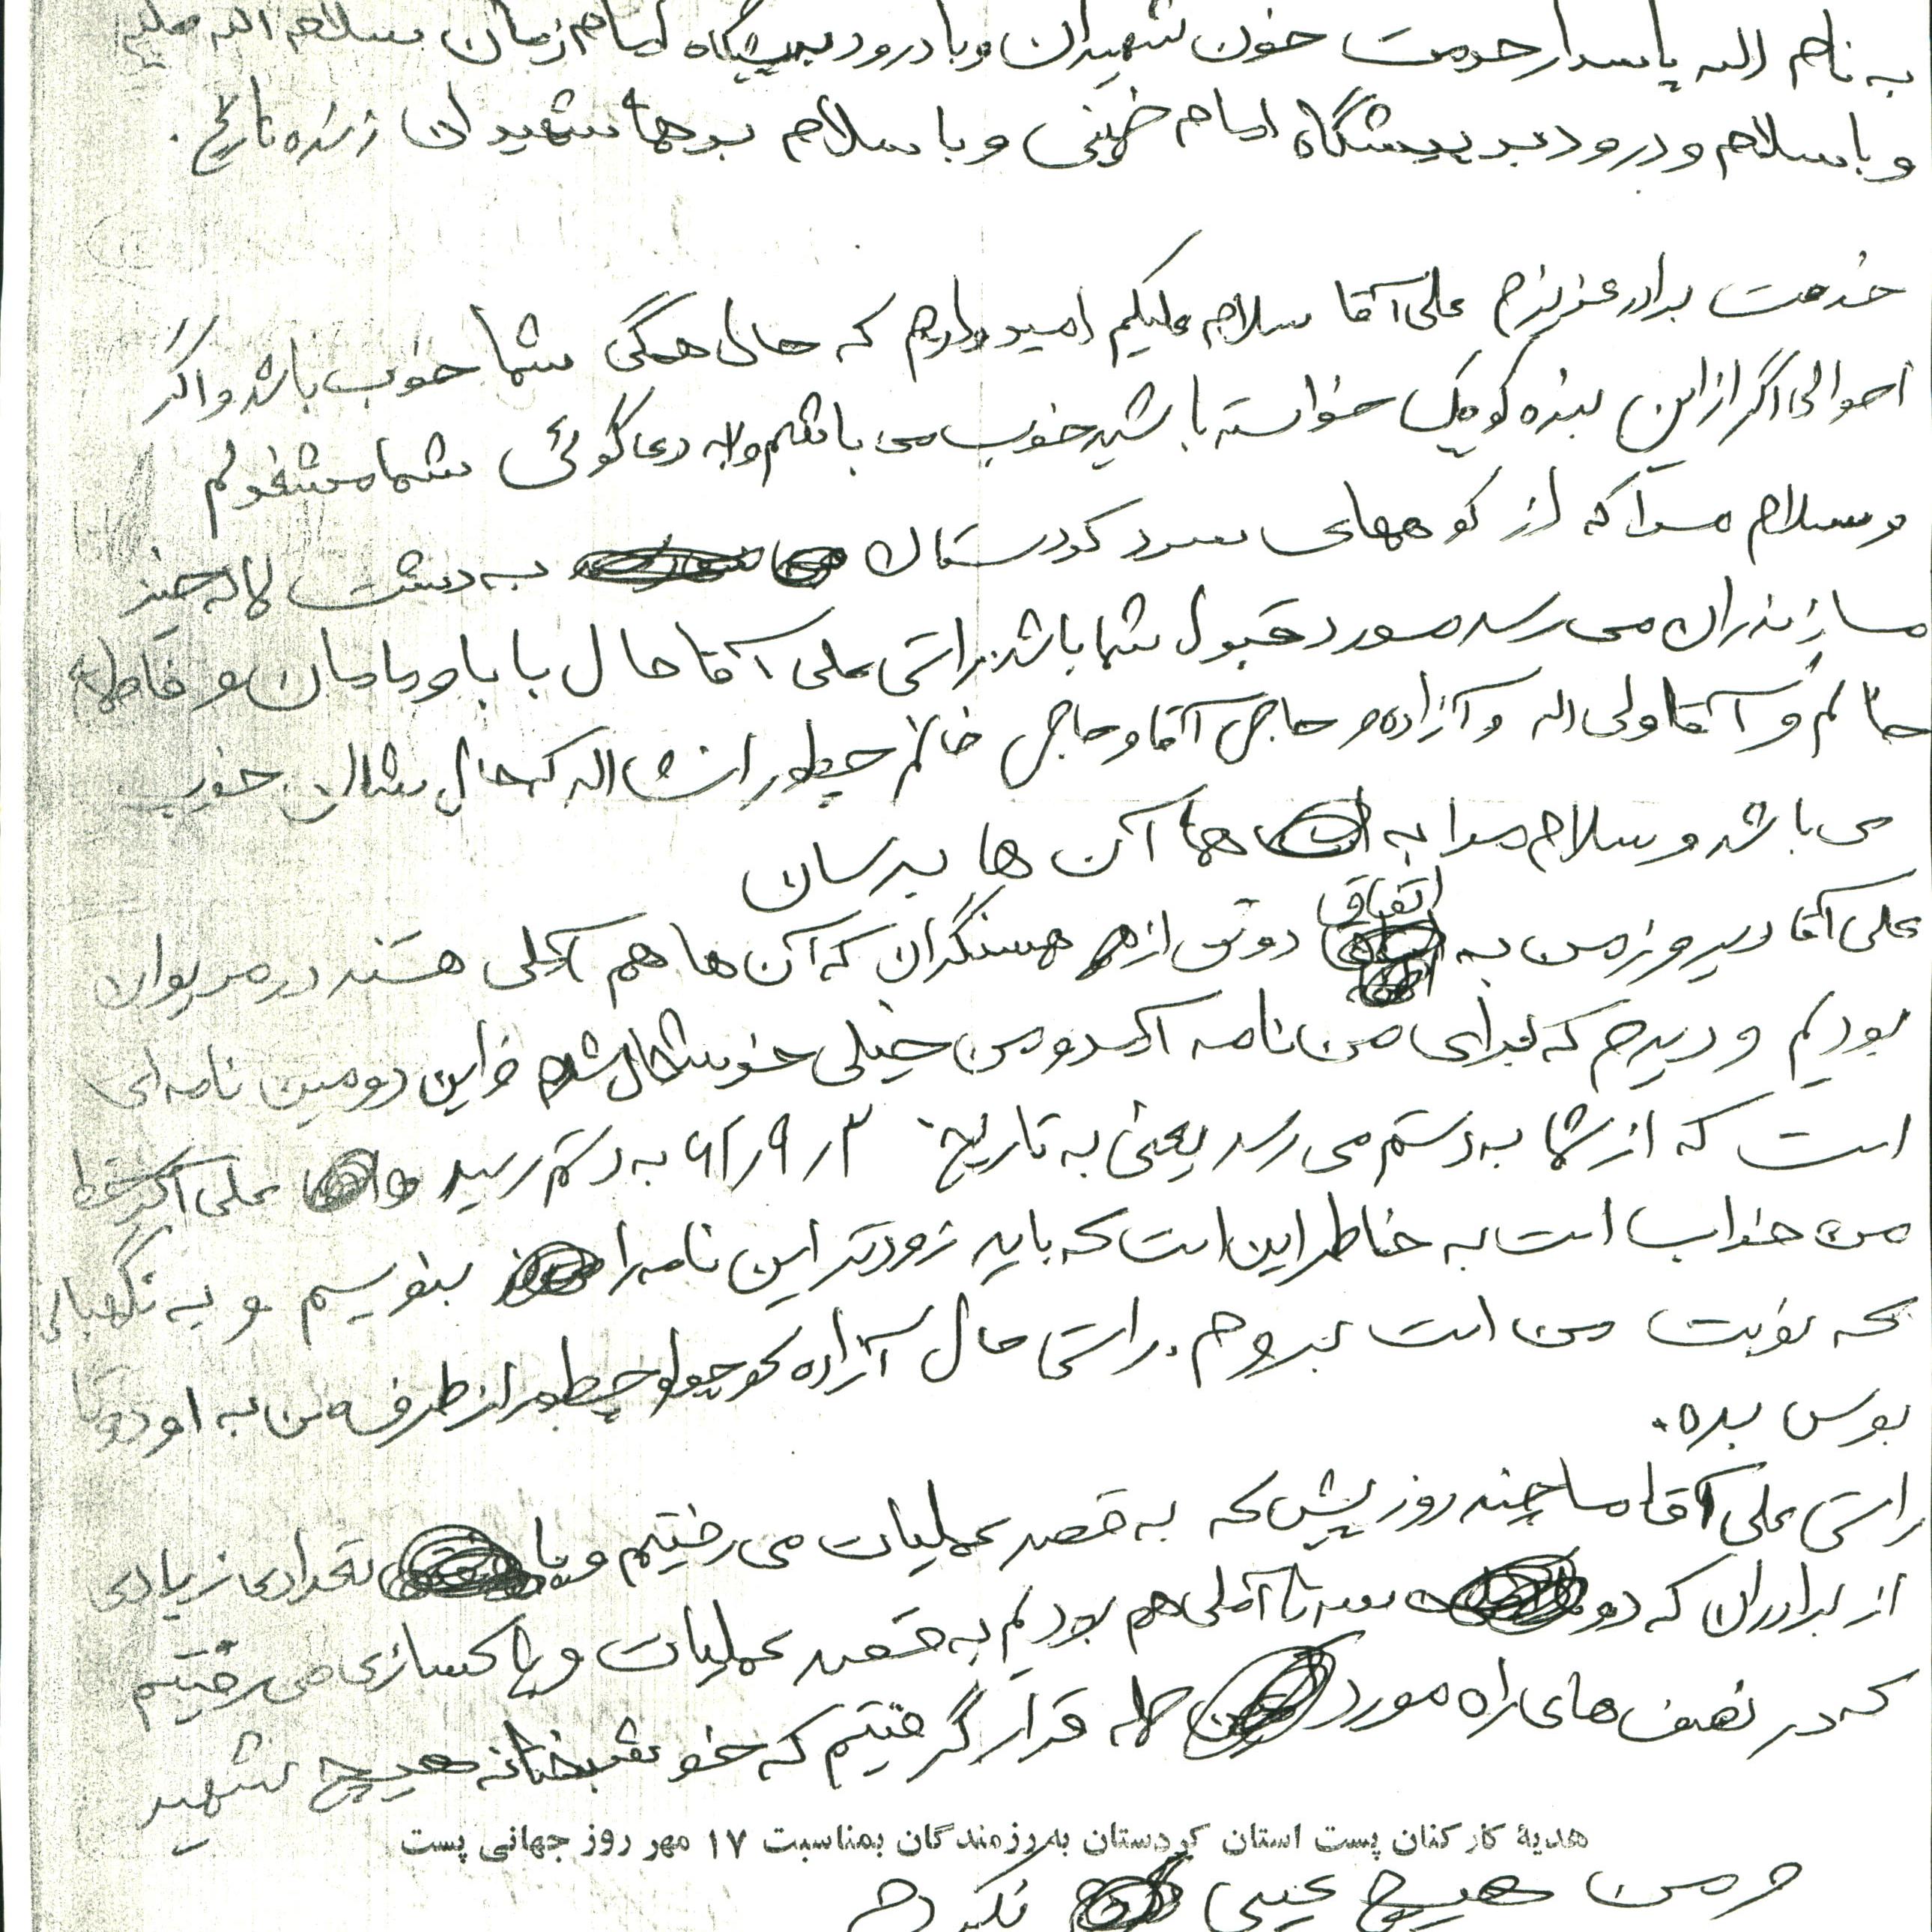 به نام اله پاسدار حرمت خون شهیدان و با درود بر پیشگاه امام زمان سلام اله علیه
و با سلام و درود بر پیشگاه امام خمینی و با سلام بر هما شهیدان زنده تاریخ.
خدمت برادر عزیزم علی آقا سلام علیکم امیدوارم که حال همگی شما خوب باشد و اگر
احوالی اگر از این بنده کوچک خواسته باشید خوب می باشم و به دعا گوئی شما مشغولم
و سلام مرا که از کوههای سرد کردستان به دشت لاله خیز
مازندران می رسد مورد قبول شما باشد. راستی علی آقا حال بابا و مامان و فاطمه
خانم و آقا ولی اله و آزاده و حاجی آقا و حاجی خانم چطور انشااله که حال شان خوب
می باشد و سلام مرا به هما آن ها برسان
علی آقا دیروز من به اتفاق دو تن از هم سنگران که آن ها هم آملی هستند در مریوان
بودیم و دیدم که برای من نامه آمد و من خیلی خوشحال شدم و این دومین نامه ای
است که از شما به دستم می رسد یعنی به تاریخ ۳ر۹ر۶۱ به دستم رسید علی اگر خط
من خراب است به خاطر این است که باید زودتر این نامه را بنویسم و به نگهبانی
که نوبت من است بروم. راستی حال آزاده کوچولو چطور از طرف من به او دوتا
بوس بده.
راستی علی آقا ما چند روز پیش که به قصد عملیات می رفتیم و با تعدادی زیادی
از برادران که دو سه تا آملی هم بودیم به قصد عملیات و پاکسازی می رفتیم
که در نصف های راه مورد حمله قرار گرفتیم که خوشبختانه هیچ شهید
هدیهٔ کارکنان پست استان کردستان به‌رزمندگان بمناسبت ۱۷ مهر روز جهانی پست
و من هیچ عیبی نکردم